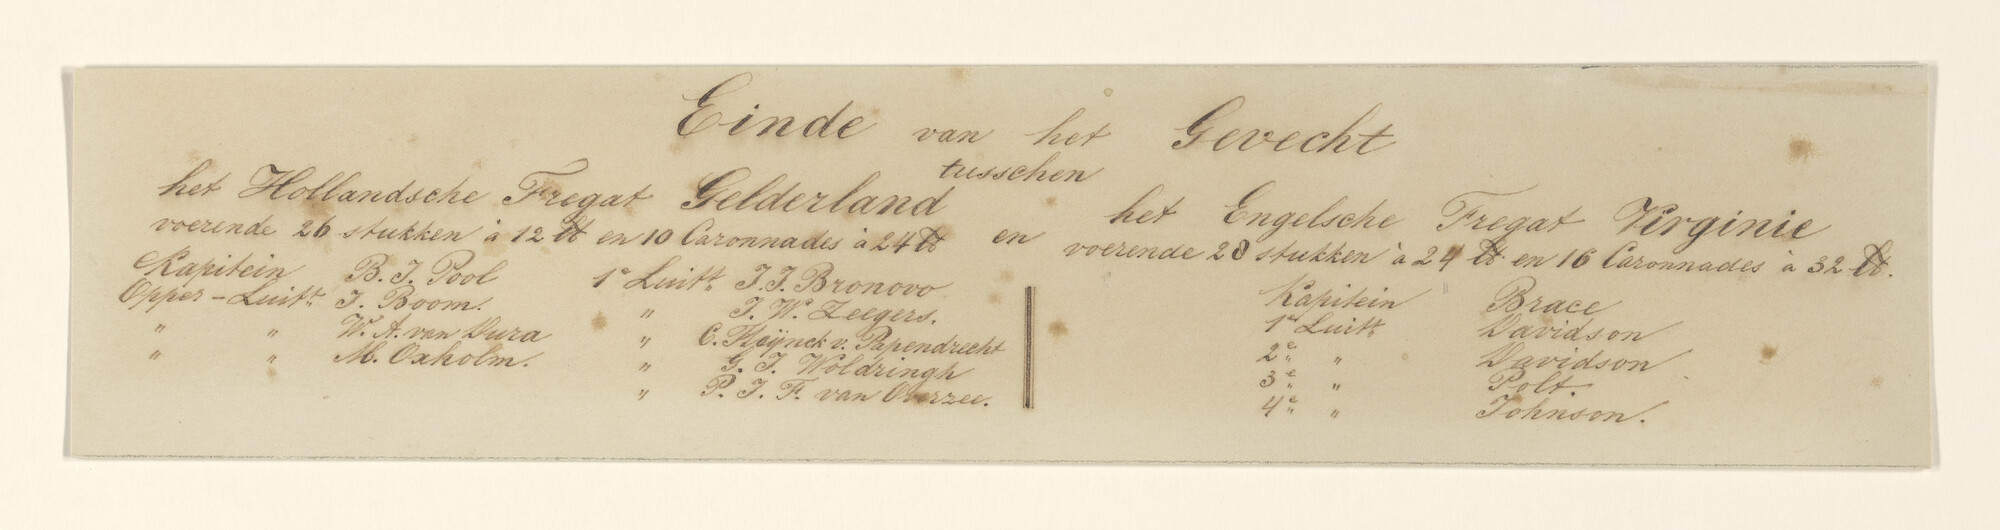 Einde van het Gevecht
tusschen
het Hollandsche Fregat Gelderland
voerende 26 stukken à 12 ℔ en 10 Caronnades à 24 ℔
en
het Engelsche Fregat Virginie
voerende 28 stukken à 24 ℔ en 16 Caronnades à 32 ℔.
Kapitein B. J. Pool
Opper-Luitt. J. Boom.
" " W. A. van Dura
" " M. Oxholm.
1e Luitt. J. J. Bronovo
" J. W. Zeegers.
" C. Hoÿnck v. Papendrecht
" G. J. Woldringh
" P. J. F. van Overzee.
Kapitein Brace
1e Luitt Davidson
2e " Davidson
3e " Polt.
4e " Johnson.